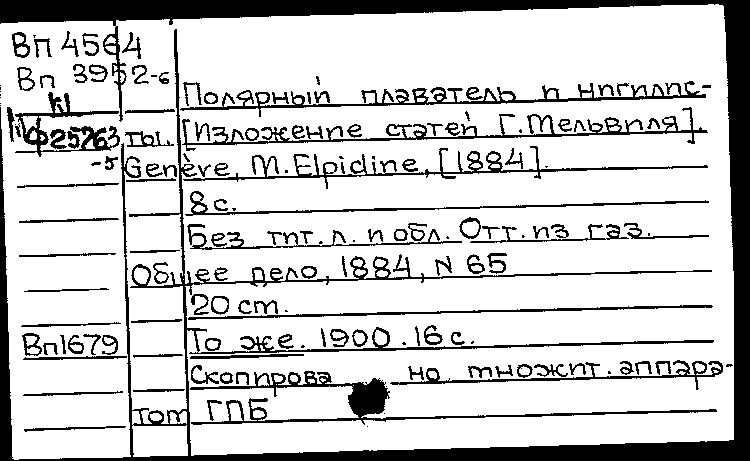 Вп 4564
Вп 3952-6
Полярный плаватель и нигилис-
Ф25763 ты. [Изложение статей Г.Мельвиля].
-5 Genève, M. Elpidine, [1884].
8 с.
Без тит. л. и обл. Отт. из газ.
Общее дело, 1884, N 65
20 cm.
Вп1679 То же. 1900. 16 с.
Скопирова но множит. аппара-
том ГПБ